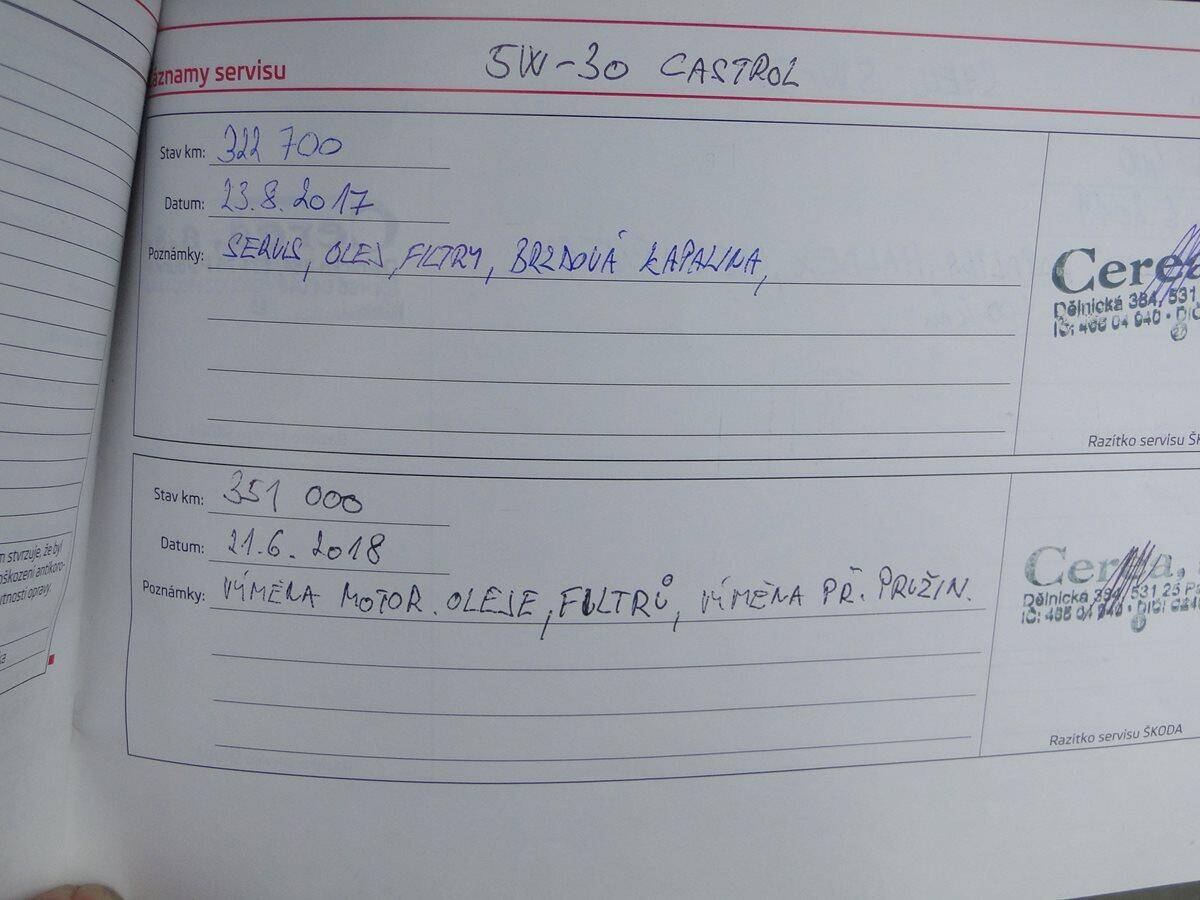 Záznamy servisu
5W-30 CASTROL
Stav km: 322 700
Datum: 23.8.2017
Poznámky: SERVIS, OLEJ, FILTRY, BRZDOVÁ KAPALINA,
Dělnická 384, 531
IČ: 466 04 940 • DIČ
Razítko servisu
Stav km: 351 000
Datum: 21.6.2018
Poznámky: VÍMĚNA MOTOR. OLEJE, FILTRŮ, VÍMĚNA PŘ. PRUŽIN.
Dělnická 384, 531 23
Razítko servisu ŠKODA
stvrzuje, že byl
opravy.